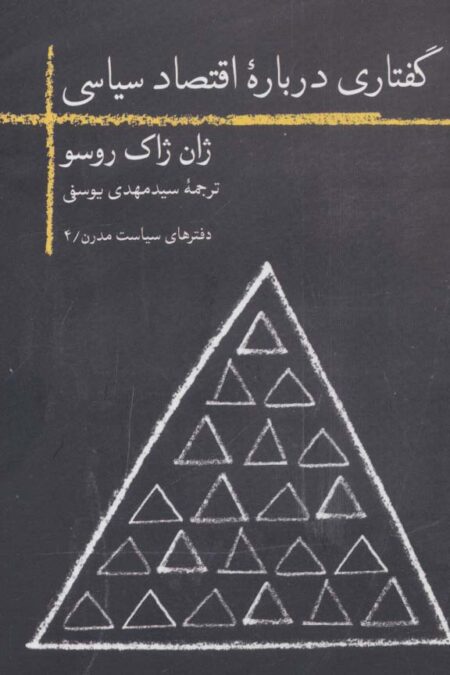 گفتاری دربارهٔ اقتصاد سیاسی
ژان ژاک روسو
ترجمهٔ سیدمهدی یوسفی
دفترهای سیاست مدرن/۴